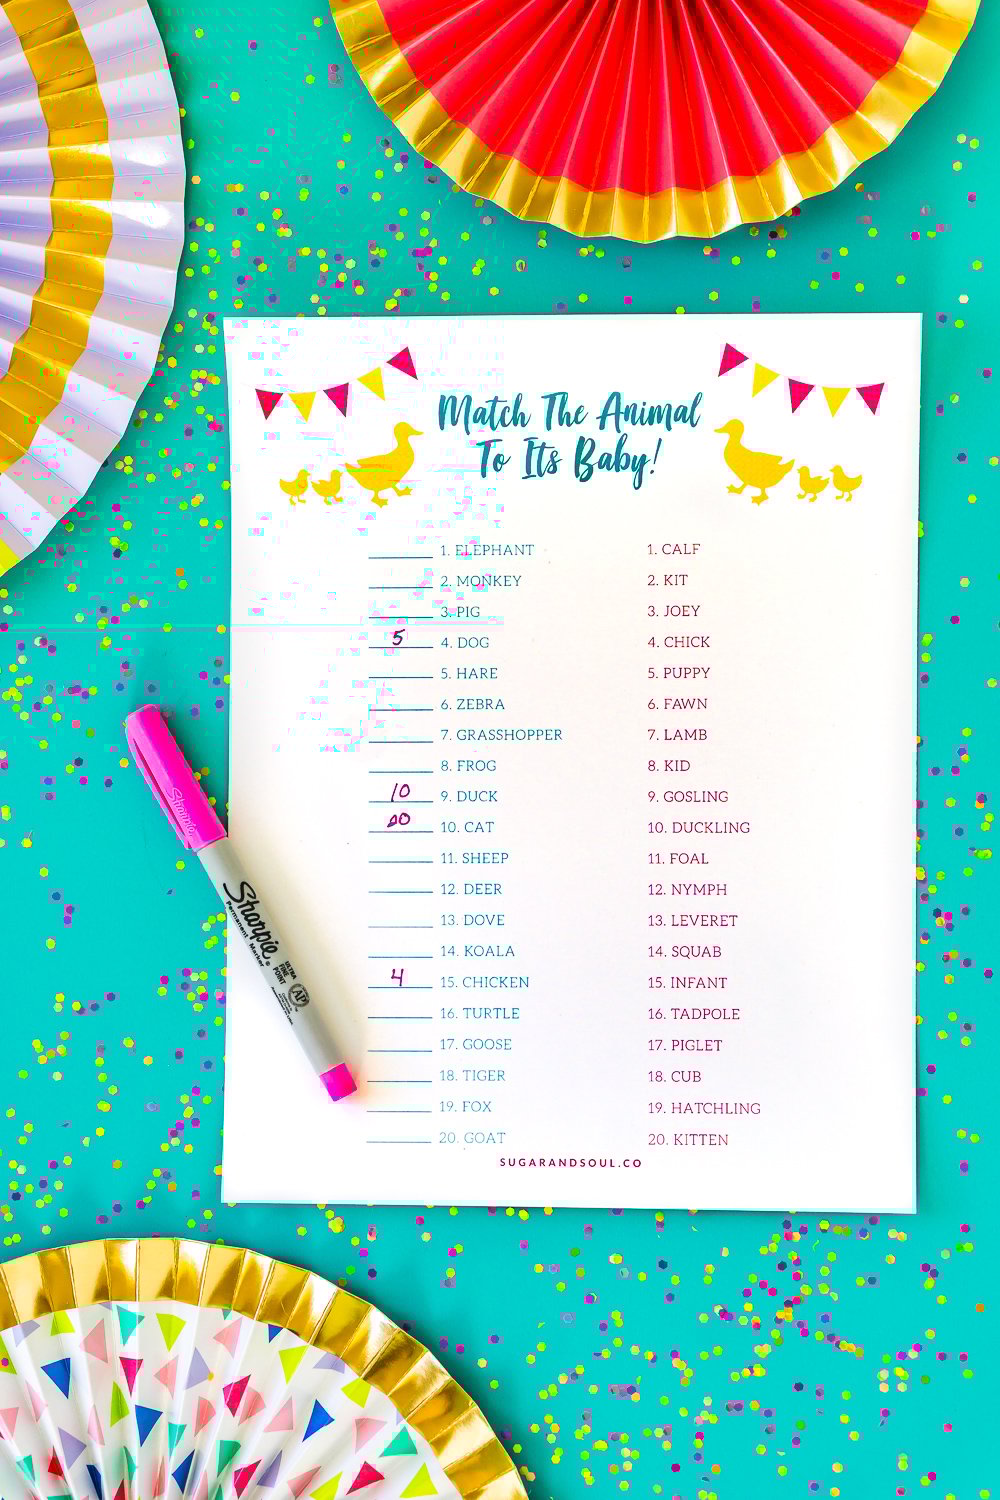 Match The Animal
To Its Baby!
1. ELEPHANT 1. CALF
2. MONKEY 2. KIT
3. PIG 3. JOEY
5 4. DOG 4. CHICK
5. HARE 5. PUPPY
6. ZEBRA 6. FAWN
7. GRASSHOPPER 7. LAMB
8. FROG 8. KID
10 9. DUCK 9. GOSLING
20 10. CAT 10. DUCKLING
11. SHEEP 11. FOAL
12. DEER 12. NYMPH
13. DOVE 13. LEVERET
14. KOALA 14. SQUAB
4 15. CHICKEN 15. INFANT
16. TURTLE 16. TADPOLE
17. GOOSE 17. PIGLET
18. TIGER 18. CUB
19. FOX 19. HATCHLING
20. GOAT 20. KITTEN
SUGARANDSOUL.CO
Sharpie
Sharpie
Permanent Marker
ULTRA
FINE
POINT
AP